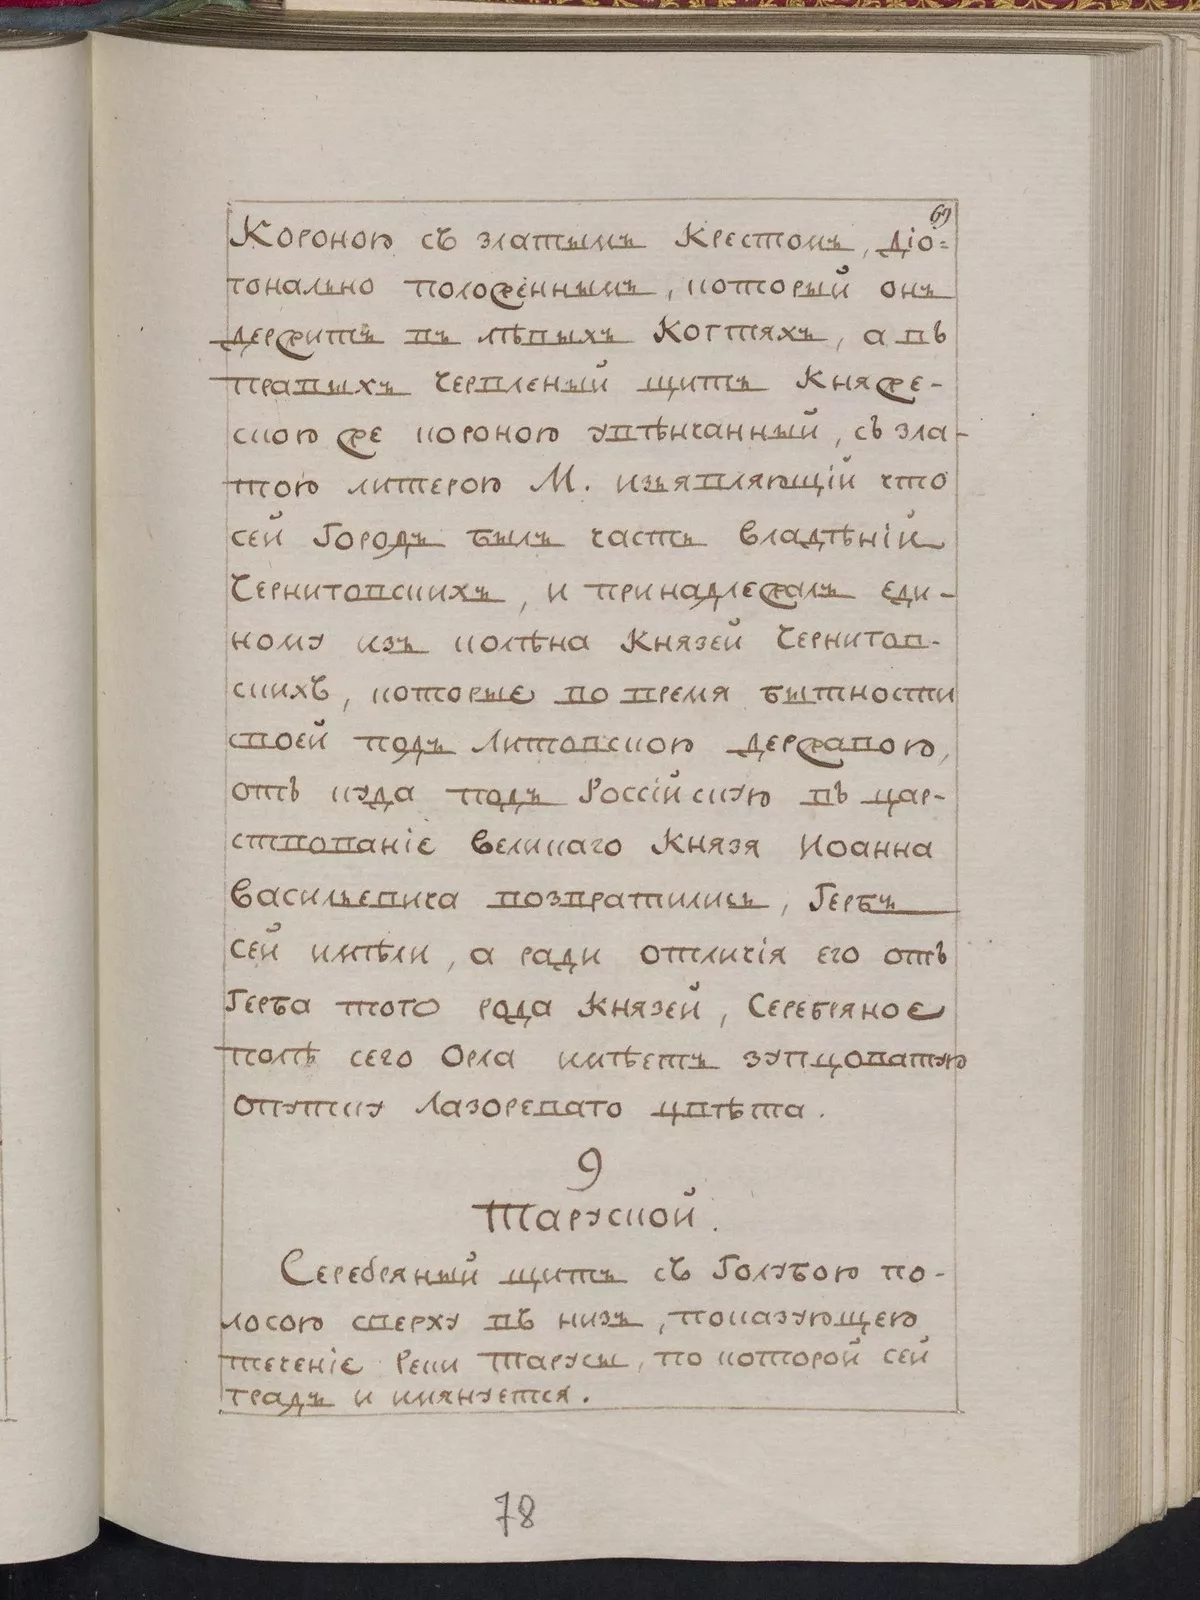 69
Короною съ златымъ Крестомъ, діо=
гонально положеннымъ, который онъ
держитъ въ лѣвыхъ Когтяхъ, а въ
правыхъ Червленый щитъ Княже-
скою же короною увѣнчанный, съ зла-
тою литерою М. изъявляющій что
сей Городъ былъ часть Владѣній
Черниговскихъ, и принадлежалъ еди-
ному изъ колѣна Князей Чернигов-
скихъ, которые во время бытности
своей подъ Литовскою державою,
отъ куда подъ Россійскую въ цар-
ствованіе Великаго Князя Иоанна
Васильевича возвратились, Гербъ
сей имѣли, а ради отличія его отъ
Герба того рода Князей, Серебряное
полѣ сего Орла имѣетъ зупцоватую
опушку Лазореваго цвѣта.
9
Таруской.
Серебряный щитъ съ Голубою по-
лосою сверху въ низъ, показующею
теченіе Реки Тарусы, по которой сей
градъ и имянуется.
78